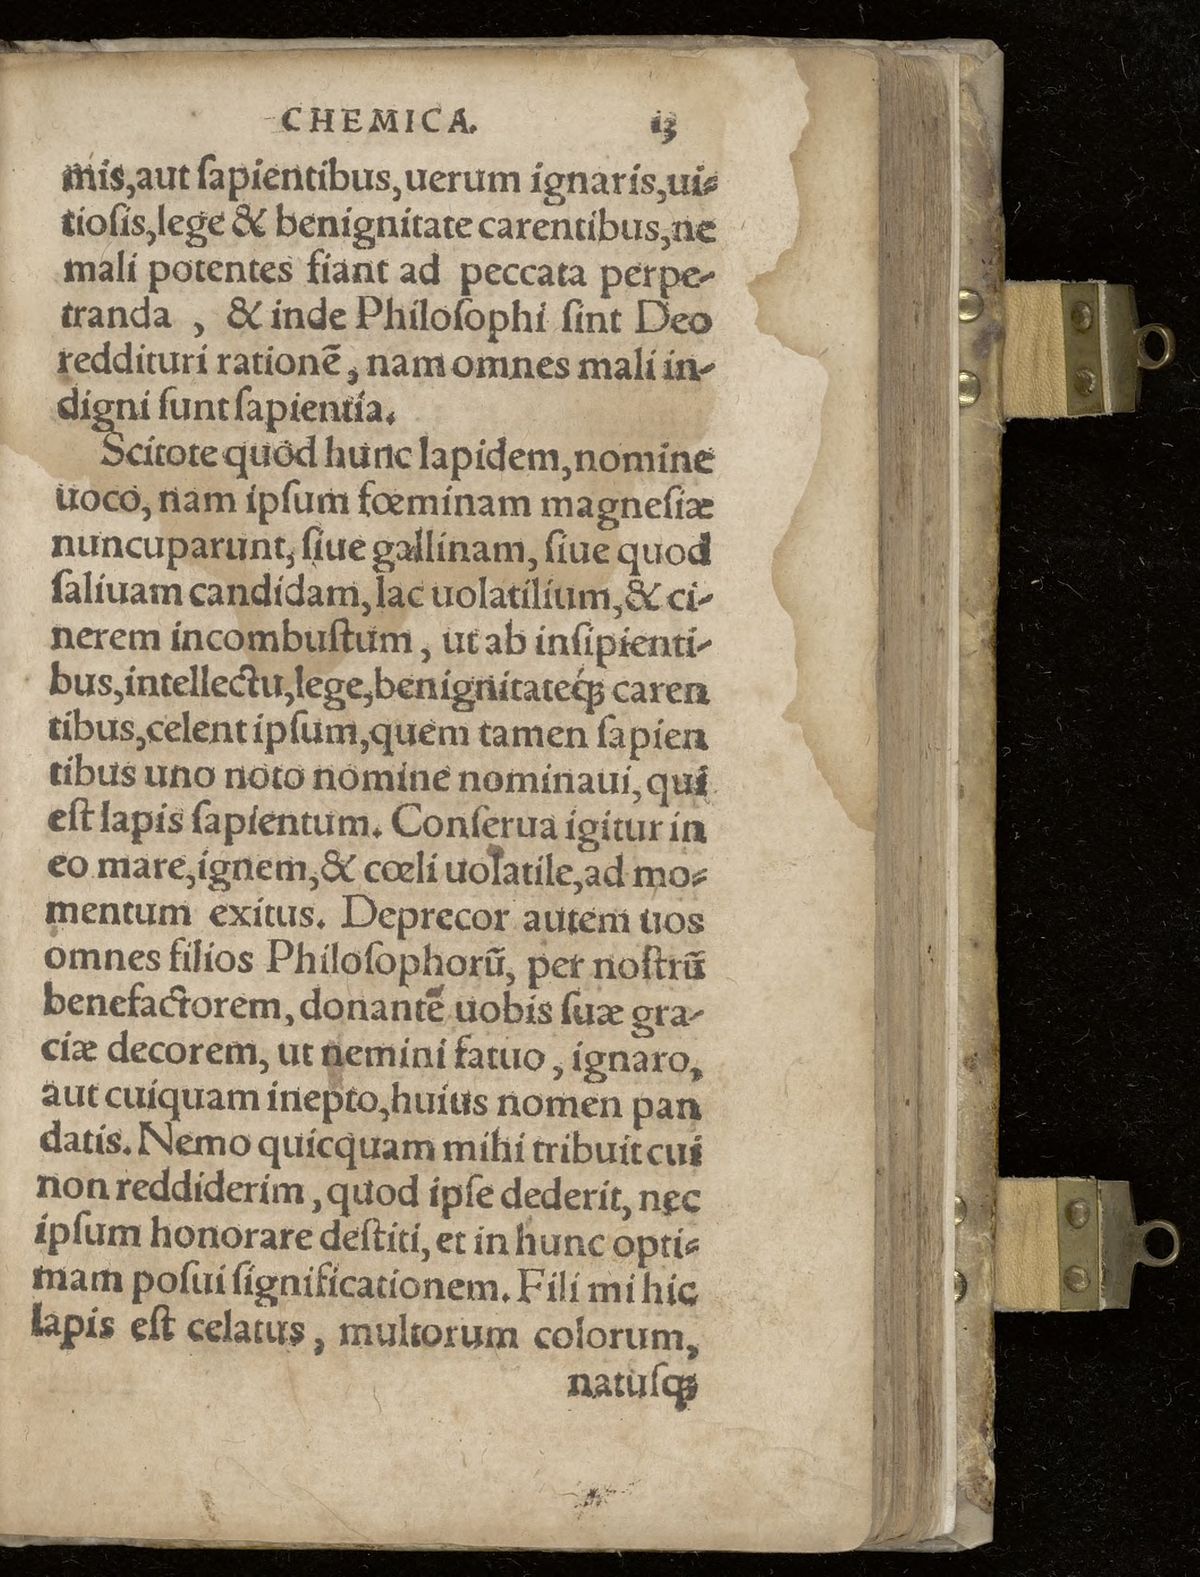 CHEMICA. 13
mis,aut ſapientibus,uerum ignaris,ui⸗
tioſis,lege & benignitate carentibus,ne
mali potentes fiant ad peccata perpe-
tranda , & inde Philoſophi ſint Deo
reddituri rationē, nam omnes mali in-
digni ſunt ſapientia.
Scitote quòd hunc lapidem,nomine
uoco, nam ipſum fœminam magneſiæ
nuncuparunt, ſiue gallinam, ſiue quod
ſaliuam candidam, lac uolatilium,& ci-
nerem incombuſtum, ut ab inſipienti-
bus,intellectu,lege,benignitateq́; caren
tibus,celent ipſum,quem tamen ſapien
tibus uno noto nomine nominaui, qui
eſt lapis ſapientum. Conſerua igitur in
eo mare,ignem,& cœli uolatile,ad mo⸗
mentum exitus. Deprecor autem uos
omnes filios Philoſophorū, per noſtrū
benefactorem, donantē uobis ſuæ gra-
ciæ decorem, ut nemini fatuo, ignaro,
aut cuiquam inepto,huius nomen pan
datis. Nemo quicquam mihi tribuit cui
non reddiderim, quod ipſe dederit, nec
ipſum honorare deſtiti, et in hunc opti⸗
mam poſui ſignificationem. Fili mi hic
lapis eſt celatus, multorum colorum,
natuſq;